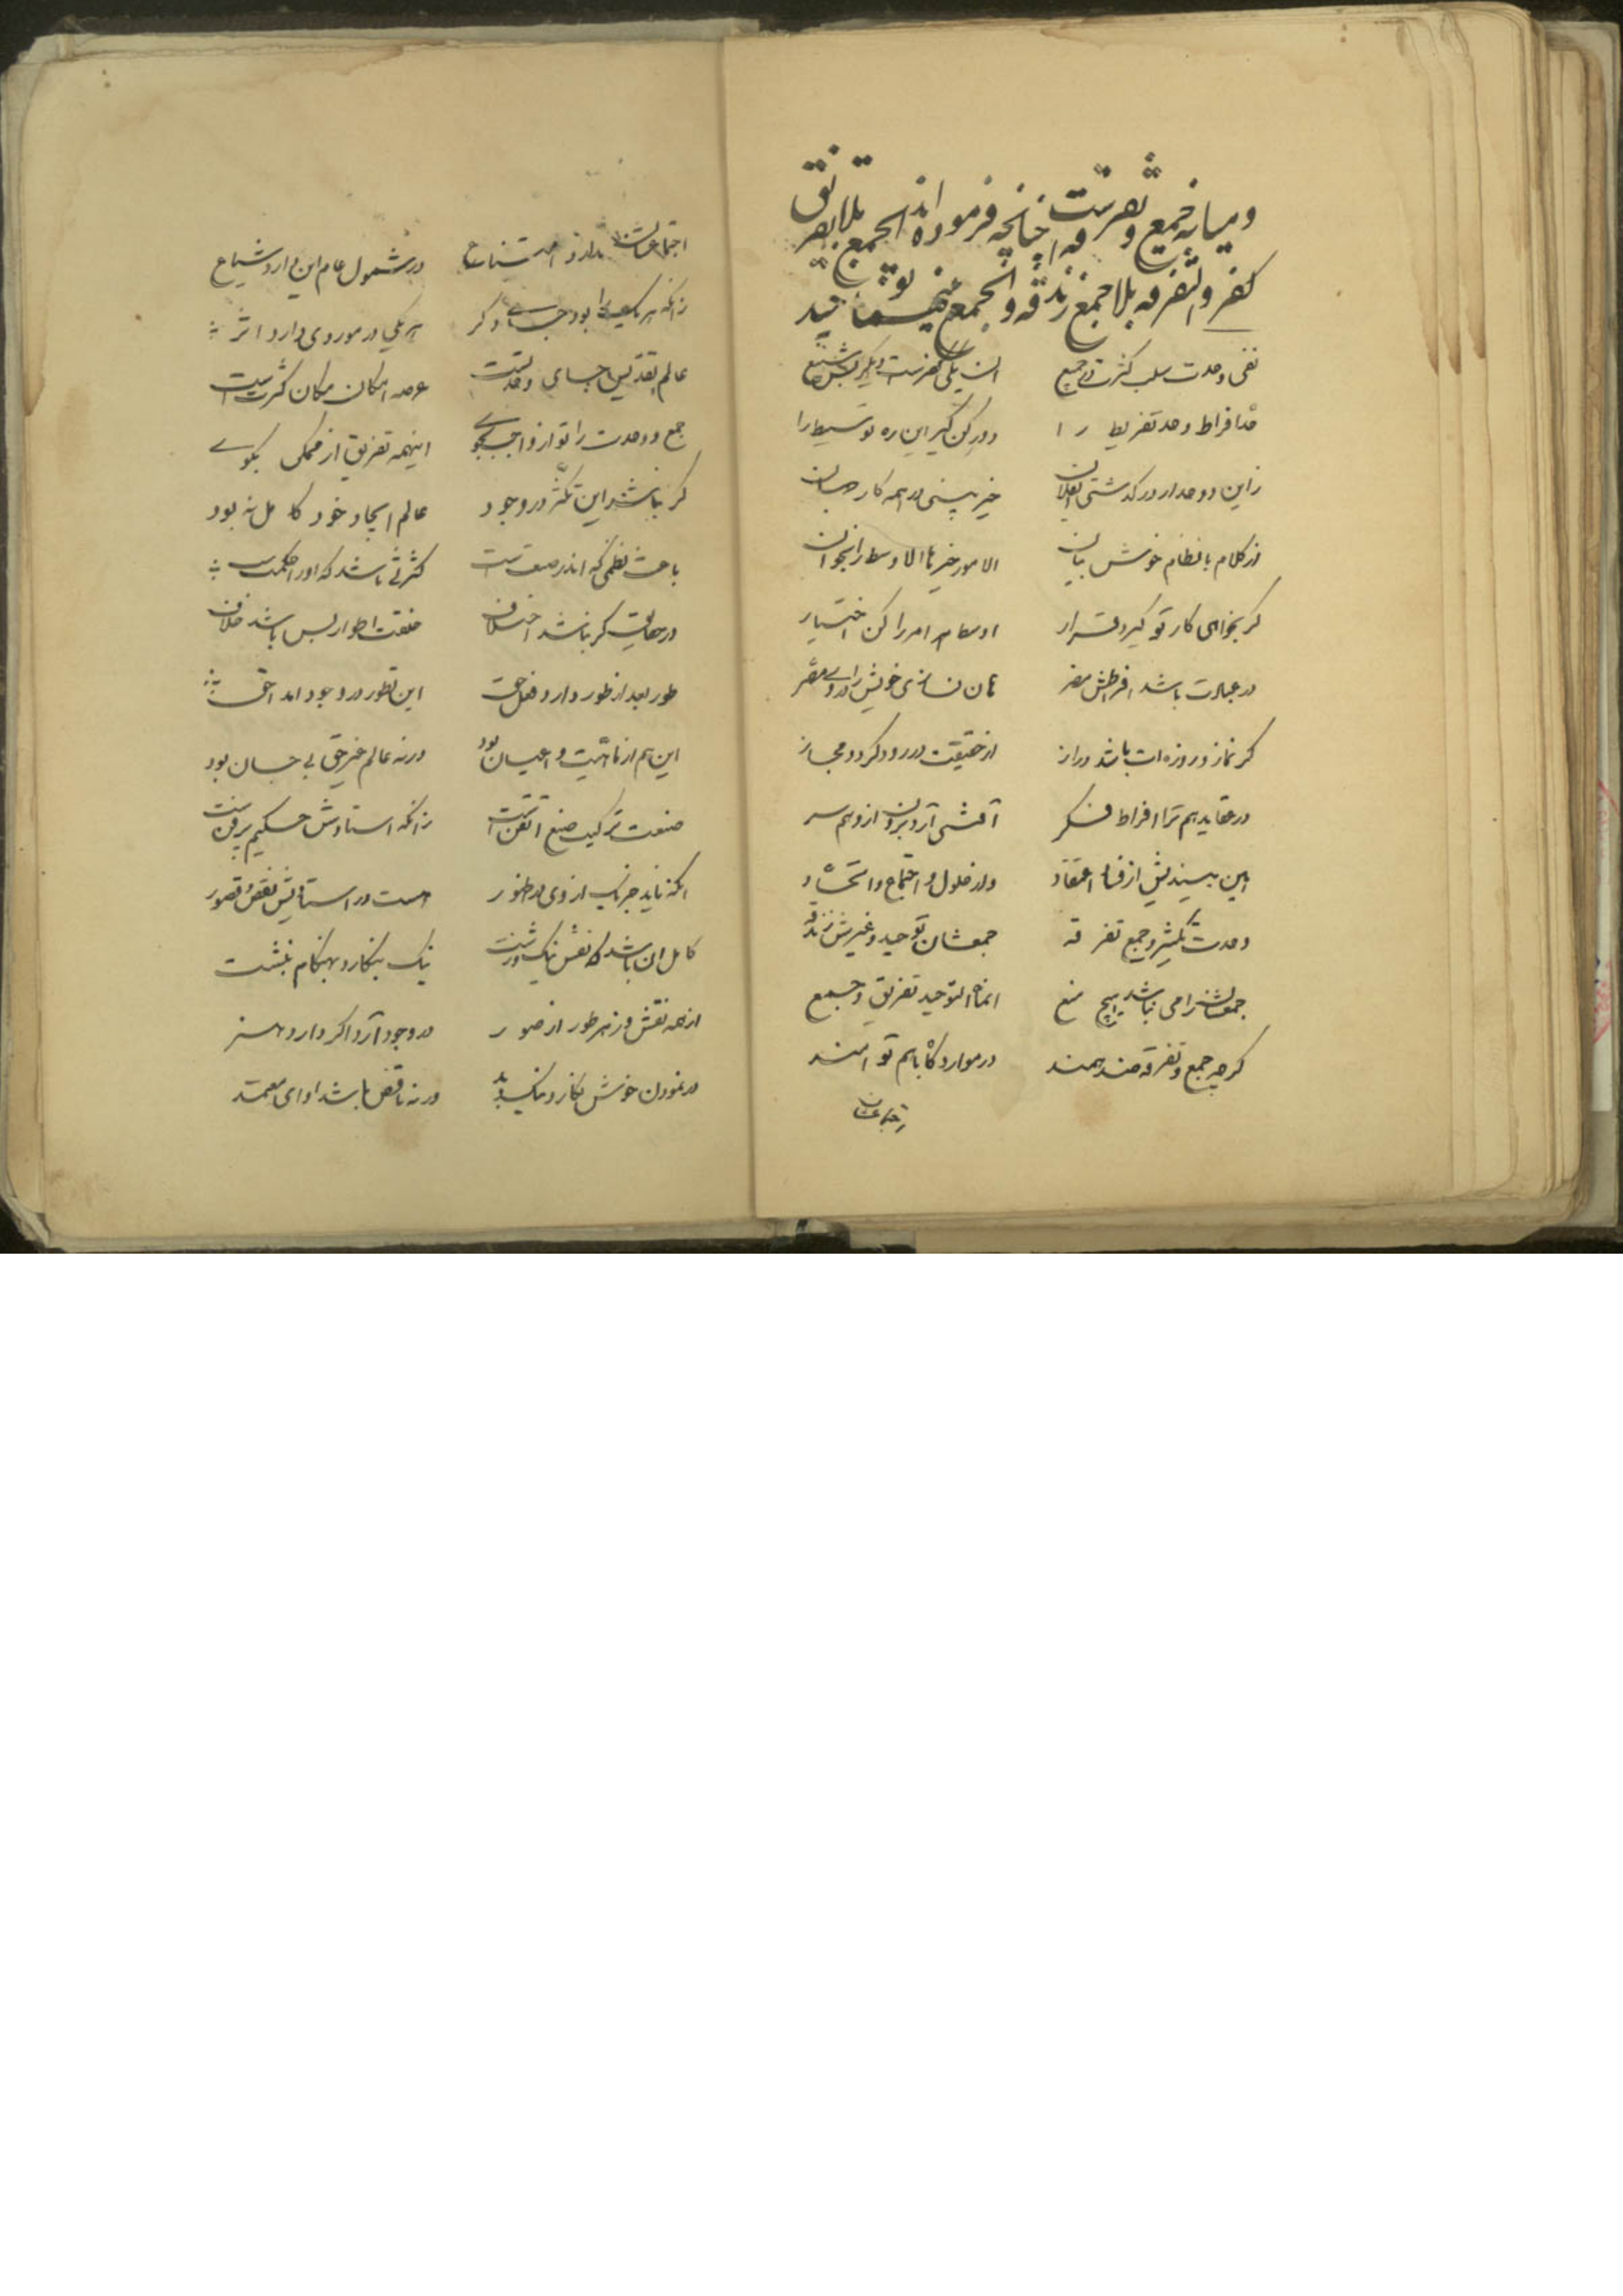 و میانه جمع و تفرقه است چنانچه فرموده اند الجمع بلا تفریق
کفر و التفرقه بلا جمع زندقه و الجمع بینهما توحید
نفی وحدت سلب کثرت در جمیع آن یکی کفرست دیگر بس شنیع
حد افراط و حد تفریط را دور کن گیر این ره توسیط را
زاین دو حد ار درگذشتی خیر بینی در همه کار جهان
از کلام بانظام خوش بیان الامور خیرها الاوسط را بخوان
گر بخواهی کار تو گیرد قرار اوسط هر امر را کن اختیار
در عبادت باشد افراطش مضر تا نسازی خویش را
گر نماز و روزه ات باشد دراز از حقیقت در رود گردد مجاز
در عقاید هم ترا افراط فکر آرد برون از وهم سر
این پسندیش از فساد اعتقاد دارد حلول و اجتماع و اتحاد
وحدت تکثیر و جمع تفرقه جمعشان توحید و غیرش زندقه
جمعشان را می نباشد هیچ منع انما التوحید تفریق و جمع
گرچه جمع و تفرقه ضد همند در موارد گاه باهم توامند
اجتماعشان
اجتماعشان ندارد امتناع در شمول عام این دارد شیاع
زانکه هر یک را بود جای دگر هر یکی در موردی دارد اثر
عالم تقدیس جای وحدتست عرصه امکان مکان کثرتست
جمع و وحدت را تو از واجب بجوی اینهمه تفریق از ممکن بگوی
گر نباشد این تکثر در وجود عالم ایجاد خود کامل نبود
باعث نظمی که اندر صنعتست کثرتی باشد که او را حکمتست
در جهان گر نباشد اختلاف خلقت اطوار بس باشد خلاف
طور بعد از طور دارد فعل حق این تطور در وجود آمد احق
این هم از ماهیت و اعیان بود ورنه عالم غیر حق بی جان بود
صنعت ترکیب صنع اتقنست زانکه استادش حکیم پرفنست
آنکه ناید جز یک از وی در ظهور هست در استادیش نقص و قصور
کامل آن باشد که نقش نیک و زشت نیک بنگارد بهنگام نبشت
از همه نقش و زهر طور از صور در وجود آرد اگر دارد هنر
در نمودن خوش نگارد نیک و بد ورنه ناقص باشد او ای معتمد